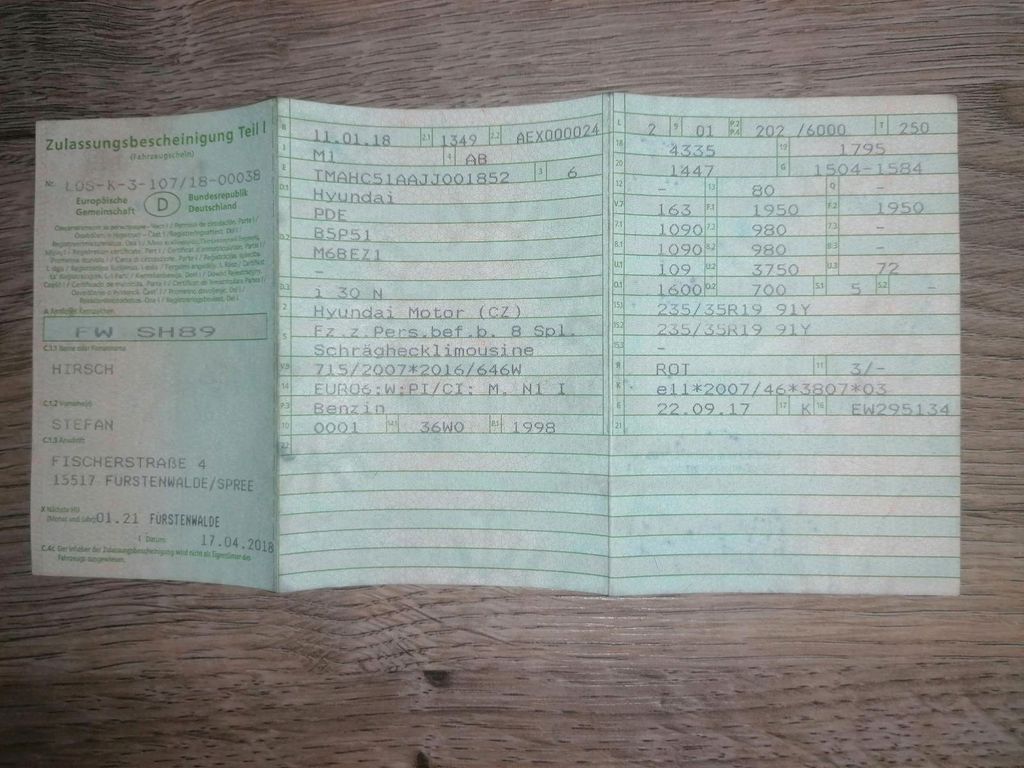 Zulassungsbescheinigung Teil I
(Fahrzeugschein)
Nr. LOS-K-3-107/18-00038
Europäische Gemeinschaft
D
Bundesrepublik Deutschland
A Amtliches Kennzeichen
FW SH89
C.1.1 Name oder Firmenname
HIRSCH
C.1.2 Vorname(n)
STEFAN
C.1.3 Anschrift
FISCHERSTRAßE 4
15517 FÜRSTENWALDE/SPREE
X Nächste HU
(Monat und Jahr) 01.21 FÜRSTENWALDE
I Datum: 17.04.2018
C.4c Der Inhaber der Zulassungsbescheinigung wird nicht als Eigentümer des
Fahrzeugs ausgewiesen.
B 11.01.18 2.1 1349 2.2 AEX000024
J M1 4 AB
E TMAHC51AAJJ001852 3 6
D.1 Hyundai
PDE
D.2 B5P51
M6BEZ1
-
D.3 i 30 N
2 Hyundai Motor (CZ)
5 Fz.z.Pers.bef.b. 8 Spl.
Schräghecklimousine
V.9 715/2007*2016/646W
14 EURO6;W;PI/CI; M, N1 I
P.3 Benzin
10 0001 14.1 36W0 P.1 1998
22
L 2 9 01 P.2 P.4 202 /6000 T 250
18 4335 19 1795
20 1447 G 1504-1584
12 - 13 80 Q -
V.7 163 F.1 1950 F.2 1950
7.1 1090 7.2 980 7.3 -
8.1 1090 8.2 980 8.3 -
U.1 109 U.2 3750 U.3 72
O.1 1600 O.2 700 S.1 5 S.2 -
15.1 235/35R19 91Y
15.2 235/35R19 91Y
15.3 -
R ROT 11 3/-
K e11*2007/46*3807*03
6 22.09.17 17 K 16 EW295134
21